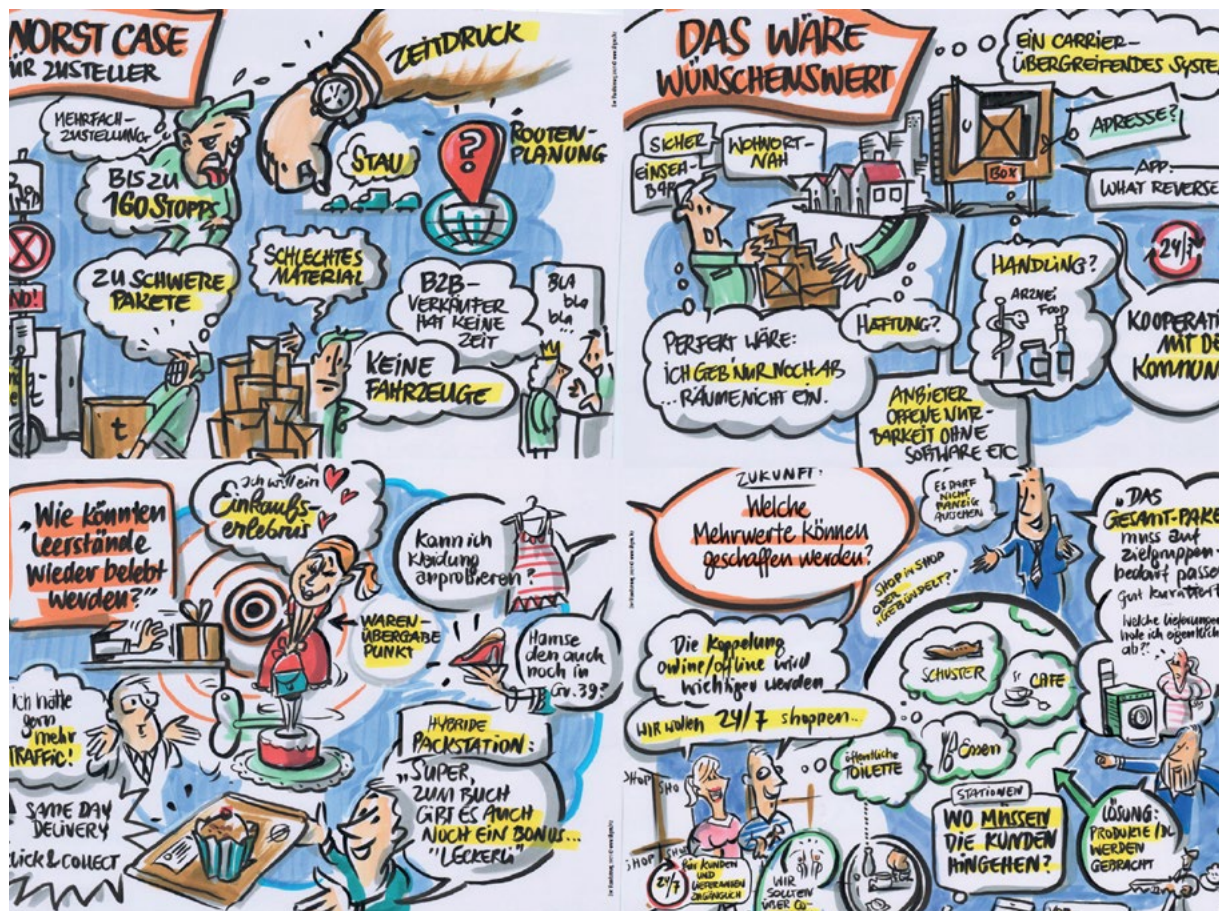 WORST CASE
FÜR ZUSTELLER
ZEITDRUCK
MEHRFACH-
ZUSTELLUNG
BIS ZU
160 STOPPS
STAU
?
ROUTEN-
PLANUNG
ZU SCHWERE
PAKETE
SCHLECHTES
MATERIAL
B2B-
VERKÄUFER
HAT KEINE
ZEIT
BLA
bla
bla
...
KEINE
FAHRZEUGE
t
DAS WÄRE
WÜNSCHENSWERT
EIN CARRIER-
ÜBERGREIFENDES SYSTE
SICHER
EINSEH-
BAR
WOHNORT-
NAH
BOX
ADRESSE?
APP:
WHAT REVERSE
24/7
HANDLING?
ARZNEI
FOOD
HAFTUNG?
KOOPERATI
MIT DE
KOMMUN
PERFEKT WÄRE:
ICH GEB NUR NOCH AB
... RÄUME NICHT EIN.
ANBIETER
OFFENE NUTZ-
BARKEIT OHNE
SOFTWARE ETC
"Wie könnten
Leerstände
wieder belebt
werden?"
Ich will ein
Einkaufs-
erlebnis
Kann ich
Kleidung
anprobieren?
WAREN-
ÜBERGABE
PUNKT
Hamse
den auch
noch in
Gr. 39?
Ich hätte
gern
mehr
TRAFFIC!
SAME DAY
DELIVERY
CLICK & COLLECT
HYBRIDE
PACKSTATION:
"SUPER,
ZUM BUCH
GIBT ES AUCH
NOCH EIN BONUS...
"LECKERLI"
ZUKUNFT:
Welche
Mehrwerte können
geschaffen werden?
ES DARF
NICHT
RANZIG
AUSSEHEN
"DAS
GESAMT-PAKE
muss auf
zielgruppen-
bedarf passe
gut kuratiert
Welche Lieferungen
hole ich eigentlich
ab?"
SHOP in SHOP
ODER
"GEBÜNDELT?"
Die Koppelung
online/offline wird
wichtiger werden
WIR WOLLEN 24/7 shoppen..
SCHUSTER
CAFE
Essen
öffentliche
TOILETTE
STATIONEN
WO MÜSSEN
DIE KUNDEN
HINGEHEN?
LÖSUNG:
PRODUKTE/DL
WERDEN
GEBRACHT
SHOP
SHO
SHOP
24/7
FÜR KUNDEN
UND
LIEFERANTEN
ZUGÄNGLICH
WIR
SOLLTEN
ÜBER CO-